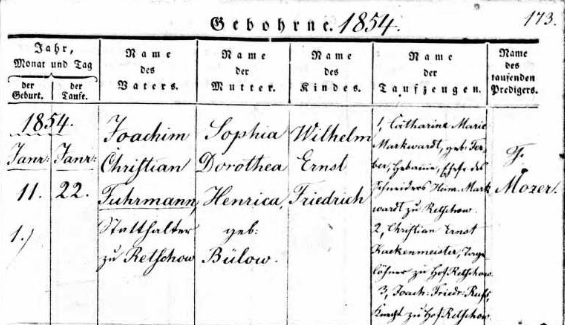 Gebohrne. 1854.
173.
Jahr, Monat und Tag
der Geburt.
der Taufe.
Name des Vaters.
Name der Mutter.
Name des Kindes.
Name der Taufzeugen.
Name des taufenden Predigers.
1854.
Janr: Janr:
11. 22.
1.)
Joachim
Christian
Fuhrmann,
Statthalter
zu Retschow
Sophia
Dorothea
Henrica,
geb:
Bülow.
Wilhelm
Ernst
Friedrich
1, Catharina Marie
Markwardt, geb:
Hebamme, Ehefr. des
Schneiders Mark
wardt zu Retschow.
2, Christian Ernst
Kuckenmeister, Tage
löhner zu Hof Retschow.
3, Joach: Friedr:
Knecht zu Hof Retschow.
F.
Mozer.